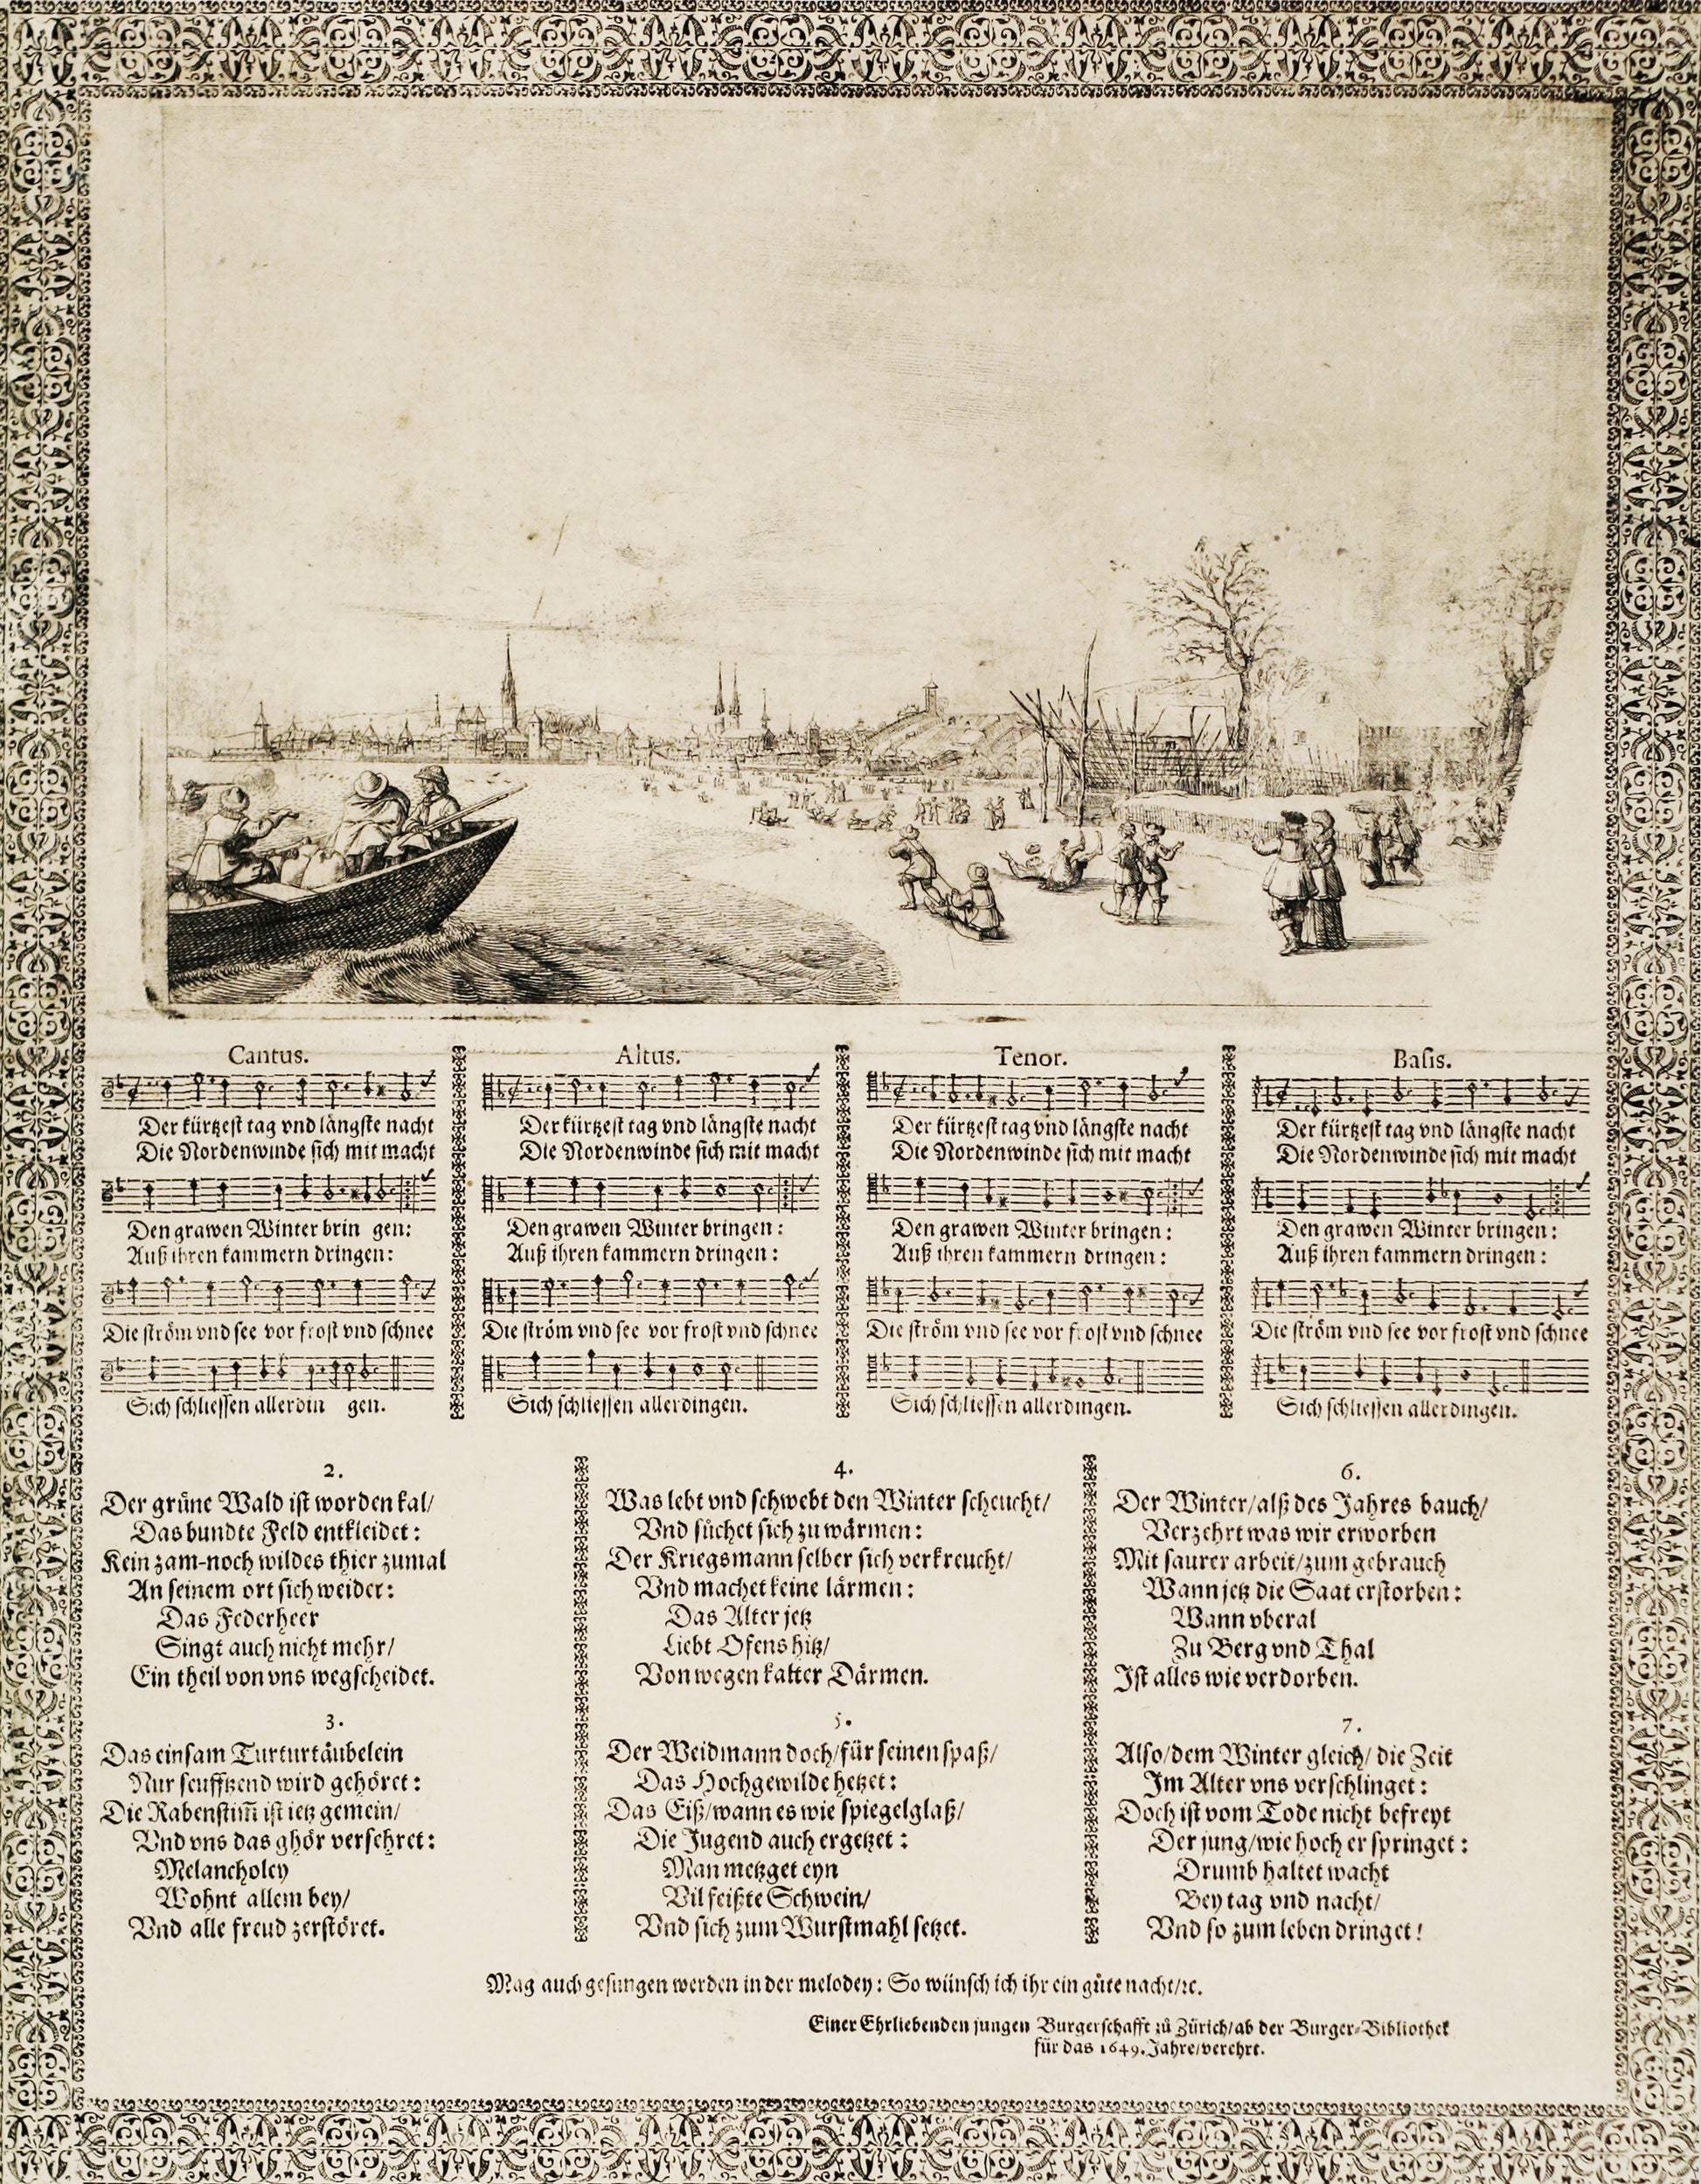 Cantus.
Der kürtzest tag vnd längste nacht
Die Nordenwinde sich mit macht
Den grawen Winter brin gen:
Auß ihren kammern dringen:
Die ström vnd see vor frost vnd schnee
Sich schliessen allerdin gen.
Altus.
Der kürtzest tag vnd längste nacht
Die Nordenwinde sich mit macht
Den grawen Winter bringen:
Auß ihren kammern dringen:
Die ström vnd see vor frost vnd schnee
Sich schliessen allerdingen.
Tenor.
Der kürtzest tag vnd längste nacht
Die Nordenwinde sich mit macht
Den grawen Winter bringen:
Auß ihren kammern dringen:
Die ström vnd see vor frost vnd schnee
Sich schliessen allerdingen.
Basis.
Der kürtzest tag vnd längste nacht
Die Nordenwinde sich mit macht
Den grawen Winter bringen:
Auß ihren kammern dringen:
Die ström vnd see vor frost vnd schnee
Sich schliessen allerdingen.
2.
Der grüne Wald ist worden kal/
Das bundte Feld entkleidet:
Kein zam-noch wildes thier zumal
An seinem ort sich weidet:
Das Federheer
Singt auch nicht mehr/
Ein theil von vns wegscheidet.
3.
Das einsam Turturtäubelein
Nur seufftzend wird gehöret:
Die Rabenstim̃ ist ietz gemein/
Vnd vns das ghör versehret:
Melancholey
Wohnt allem bey/
Vnd alle freud zerstöret.
4.
Was lebt vnd schwebt den Winter scheucht/
Vnd sůchet sich zu wärmen:
Der Kriegsmann selber sich verkreucht/
Vnd machet keine lärmen:
Das Alter jetz
Liebt Ofens hitz/
Von wegen kalter Därmen.
5.
Der Weidmann doch/für seinen spaß/
Das Hochgewilde hetzet:
Das Eiß/wann es wie spiegelglaß/
Die Jugend auch ergetzet:
Man metzget eyn
Vil feißte Schwein/
Vnd sich zum Wurstmahl setzet.
6.
Der Winter/alß des Jahres bauch/
Verzehrt was wir erworben
Mit saurer arbeit/zum gebrauch
Wann jetz die Saat erstorben:
Wann vberal
Zu Berg vnd Thal
Ist alles wie verdorben.
7.
Also/dem Winter gleich/ die Zeit
Im Alter vns verschlinget:
Doch ist vom Tode nicht befreyt
Der jung/wie hoch er springet:
Drumb haltet wacht
Bey tag vnd nacht/
Vnd so zum leben dringet!
Mag auch gesungen werden in der melodey: So wünsch ich ihr ein gůte nacht/ꝛc.
Einer Ehrliebenden jungen Burgerschafft zů Zürich/ab der Burger-Bibliothek
für das 1649. Jahre/verehrt.